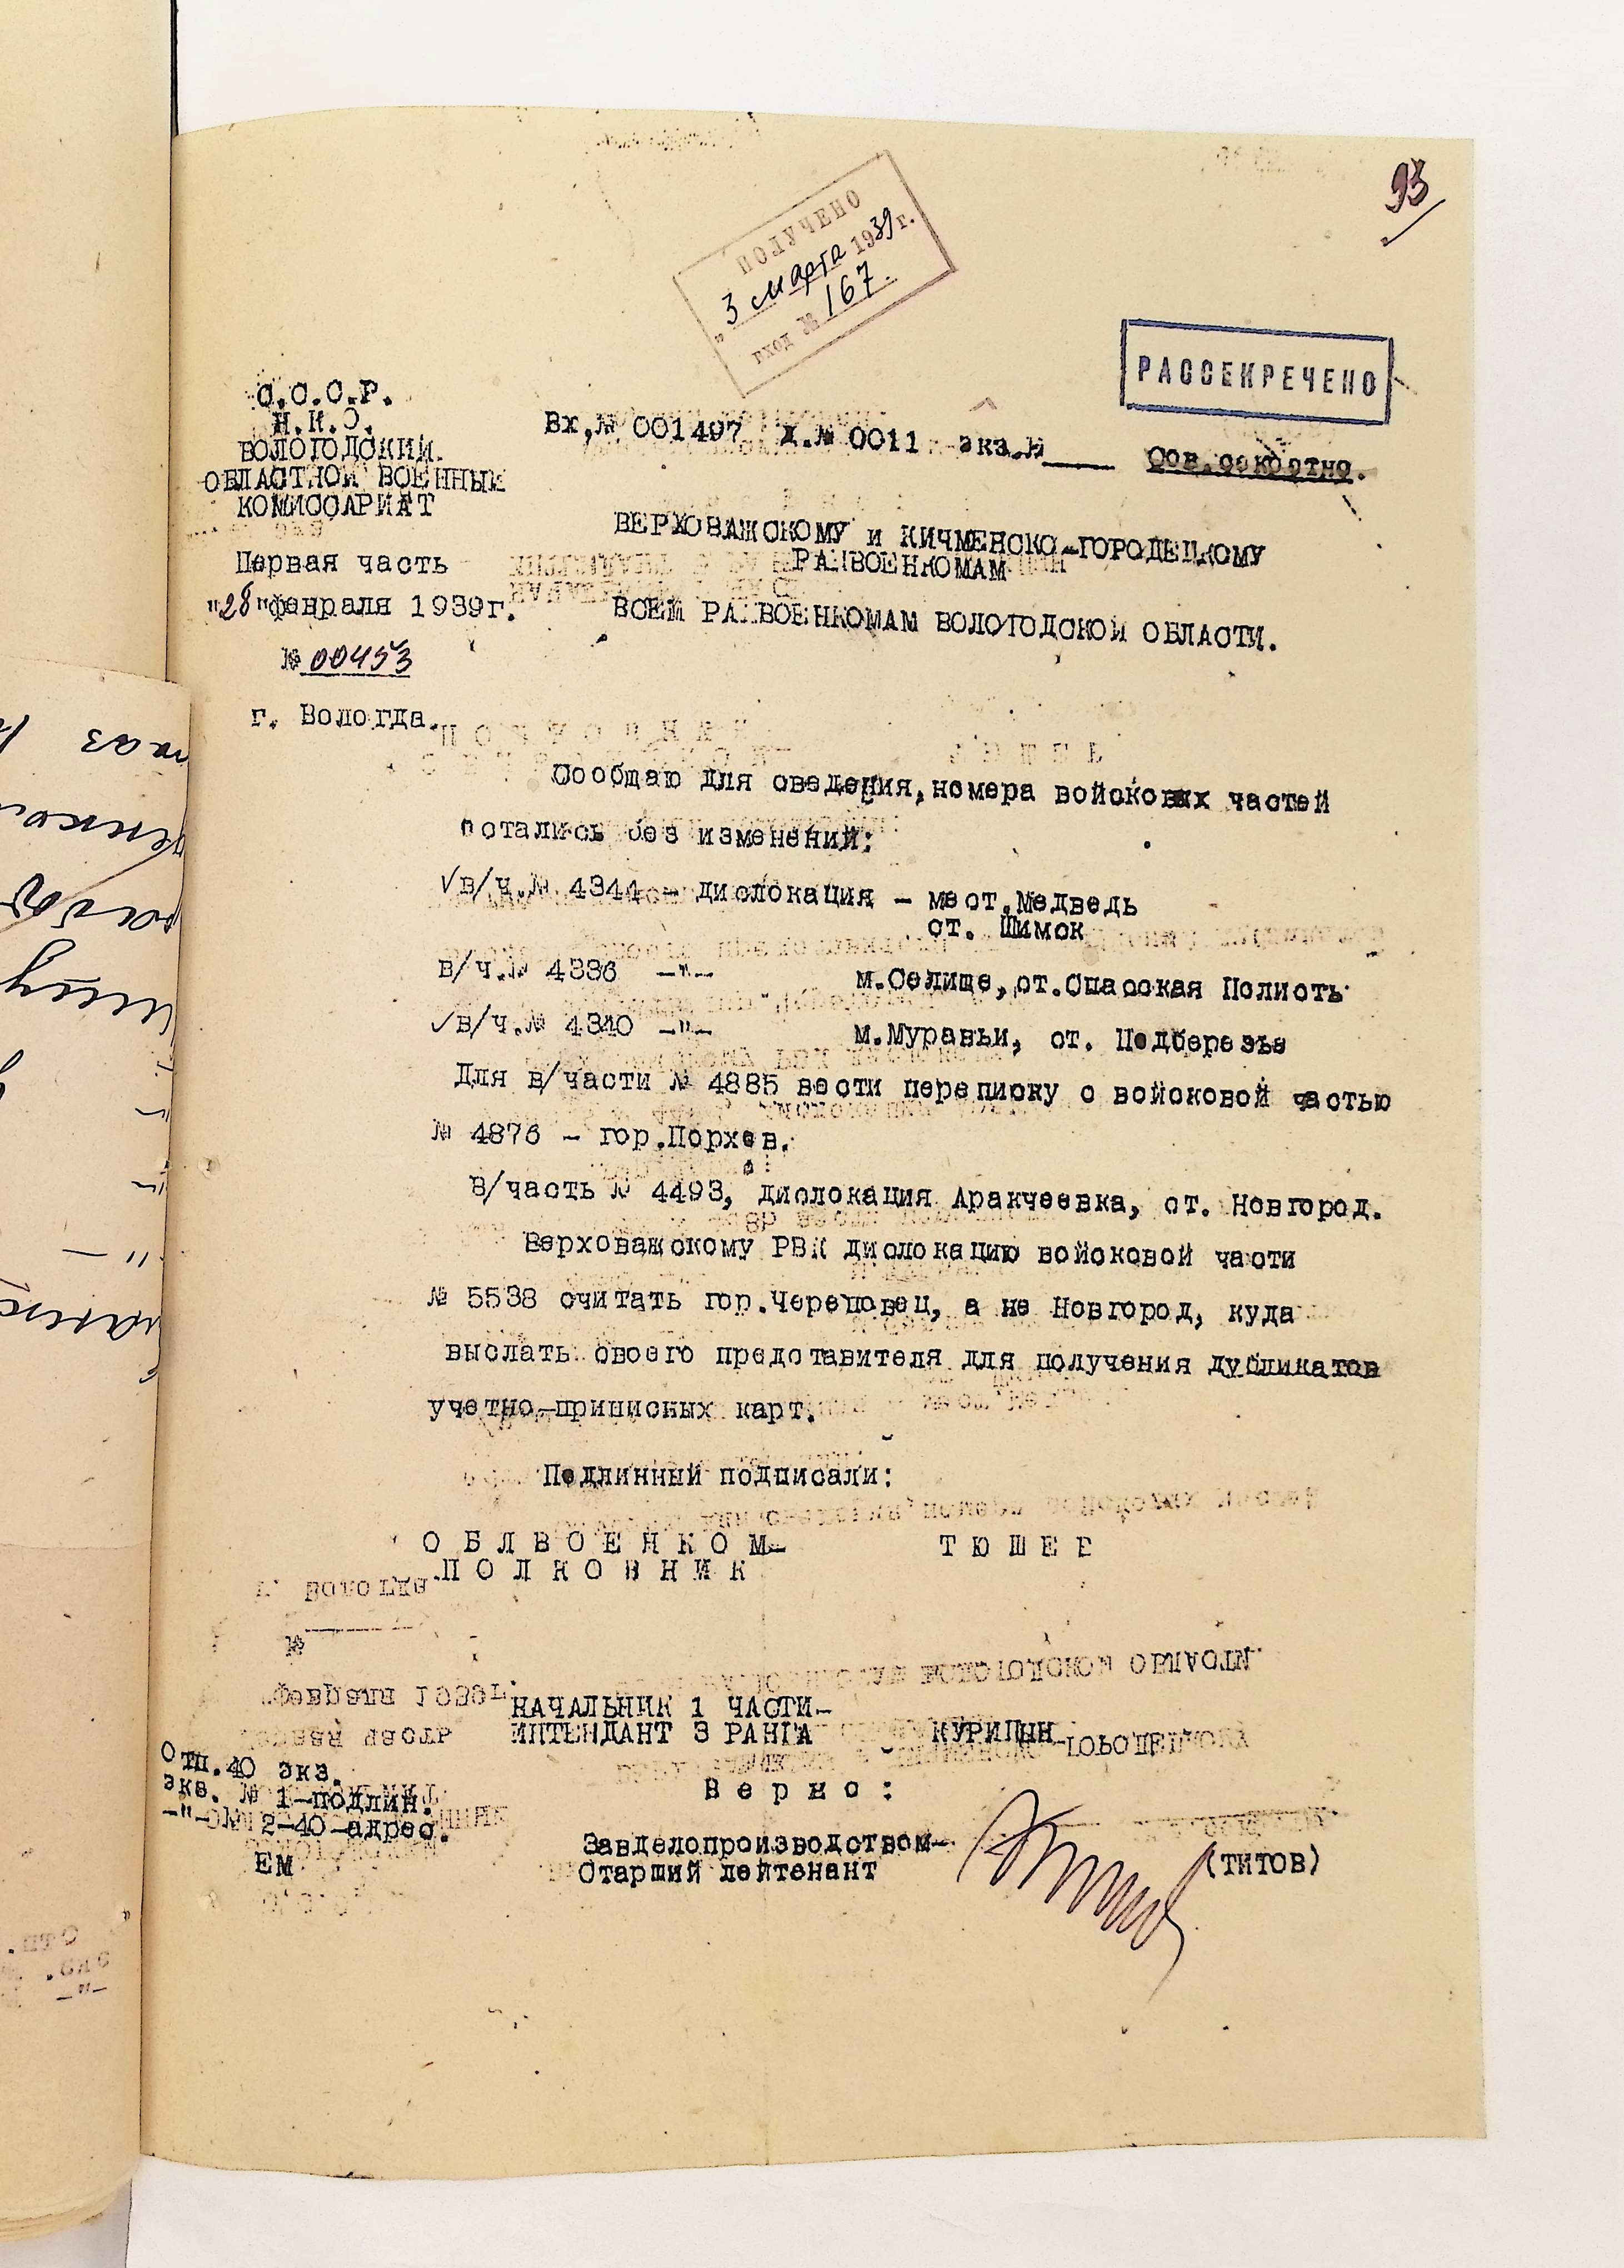 93
ПОЛУЧЕНО
"3 марта 1939г.
вход № 167.
РАССЕКРЕЧЕНО
С.С.С.Р.
Н.К.О.
ВОЛОГОДСКИЙ
ОБЛАСТНОЙ ВОЕННЫЙ
КОМИССАРИАТ
Вх,№ 001497 д.№ 0011 экз.№____ Сов.секретно.
Первая часть
"28"февраля 1939г.
№ 00453
г. Вологда.
ВЕРХОВАЖСКОМУ и КИЧМЕНСКО-ГОРОДЕЦКОМУ
РАЙВОЕНКОМАМ
ВСЕМ РАЙВОЕНКОМАМ ВОЛОГОДСКОЙ ОБЛАСТИ.
Сообщаю для сведения, номера войсковых частей
остались без изменений:
√в/ч.№ 4344 - дислокация - мест.Медведь
ст. Шимск
в/ч.№ 4336 -"- м.Селище, ст.Спасская Полисть
√в/ч.№ 4340 -"- м.Муравьи, ст. Подберезье
Для в/части № 4885 вести переписку с войсковой частью
№ 4876 - гор.Порхов.
В/часть № 4493, дислокация Аракчеевка, ст. Новгород.
Верховажскому РВК дислокацию войсковой части
№ 5538 считать гор.Череповец, а не Новгород, куда
выслать своего представителя для получения дубликатов
учетно-приписных карт.
Подлинный подписали:
ОБЛВОЕНКОМ- ТЮШЕВ
ПОЛКОВНИК
НАЧАЛЬНИК 1 ЧАСТИ-
ИНТЕНДАНТ 3 РАНГА КУРИЦЫН
Отп.40 экз.
экз. № 1-подлин.
-"- № 2-40-адрес.
ЕМ
Верно:
Завделопроизводством-
Старший лейтенант (ТИТОВ)